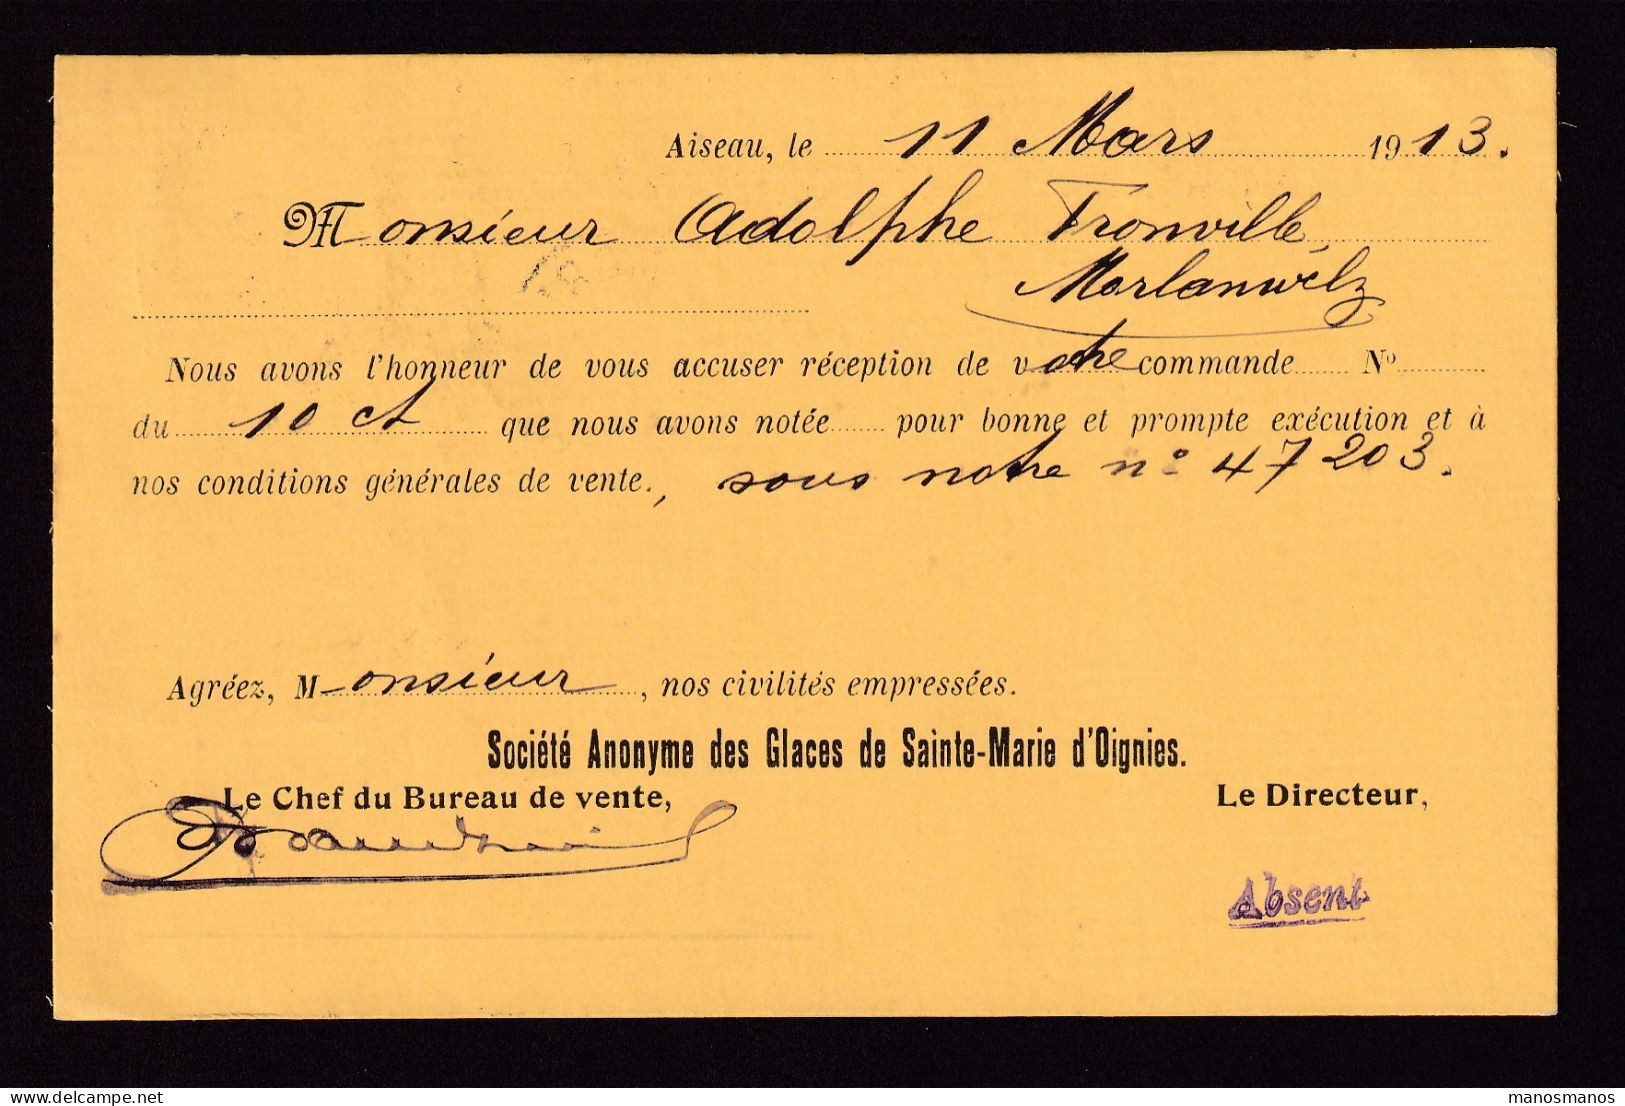 Aiseau, le 11 Mars 1913.
Monsieur Adolphe Fronville,
Morlanwelz
Nous avons l'honneur de vous accuser réception de votre commande N°
du 10 ct que nous avons notée pour bonne et prompte exécution et à
nos conditions générales de vente., sous notre n° 47203.
Agréez, Monsieur, nos civilités empressées.
Société Anonyme des Glaces de Sainte-Marie d'Oignies.
Le Chef du Bureau de vente, Le Directeur,
Absent
manosmanos